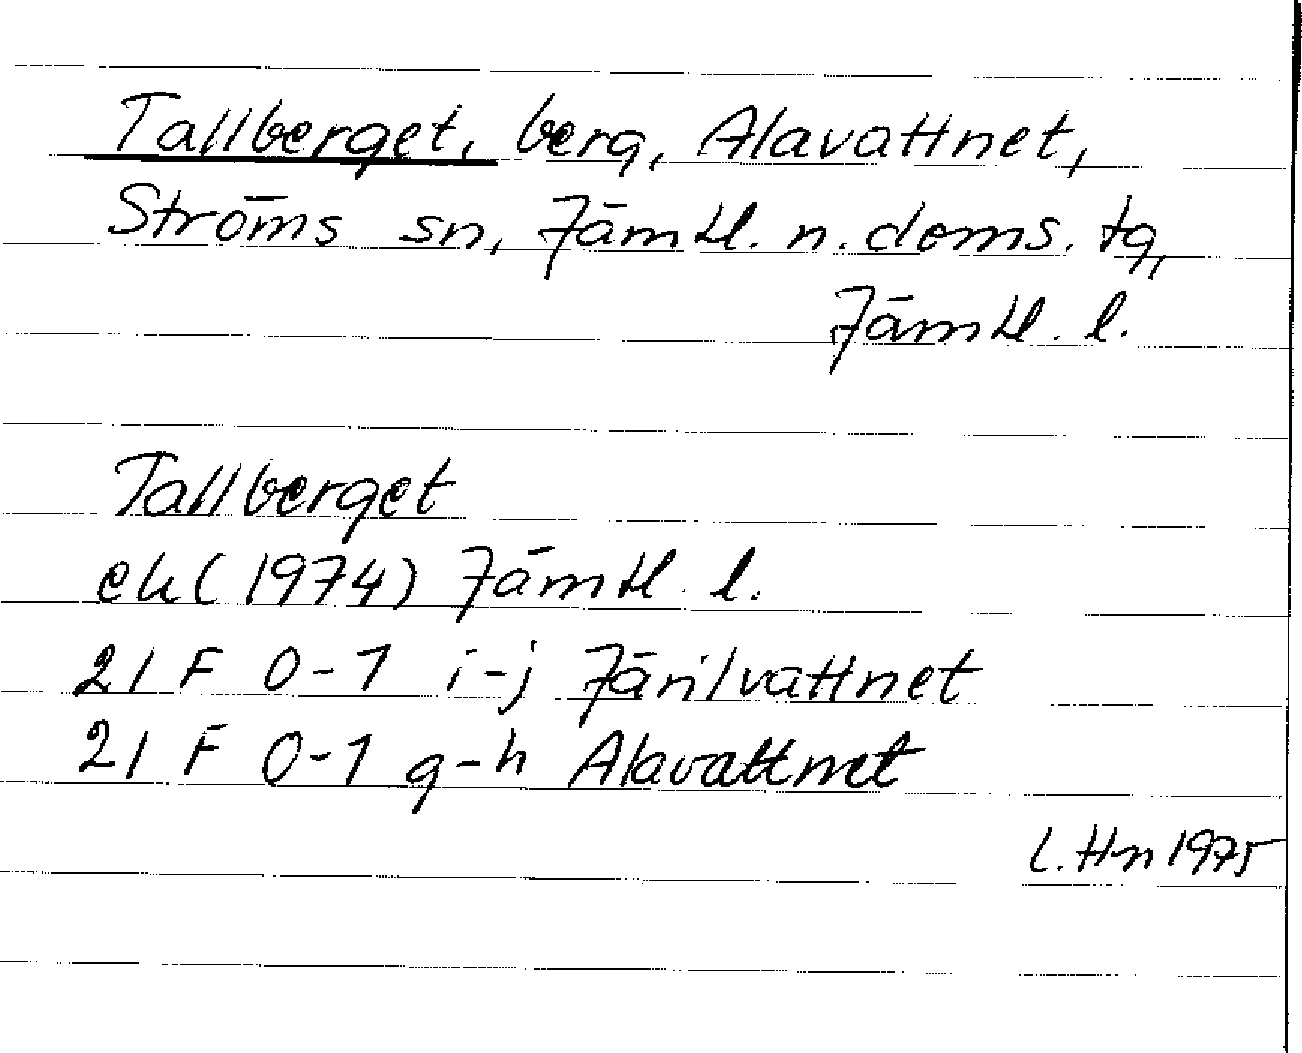 Tallberget, berg, Alavattnet,
Ströms sn, Jämtl. n. doms. tg,
Jämtl. l.
Tallberget
ek (1974) Jämtl. l.
21 F 0-1 i-j Järilvattnet
21 F 0-1 g-h Alavattnet
L. Hn 1975